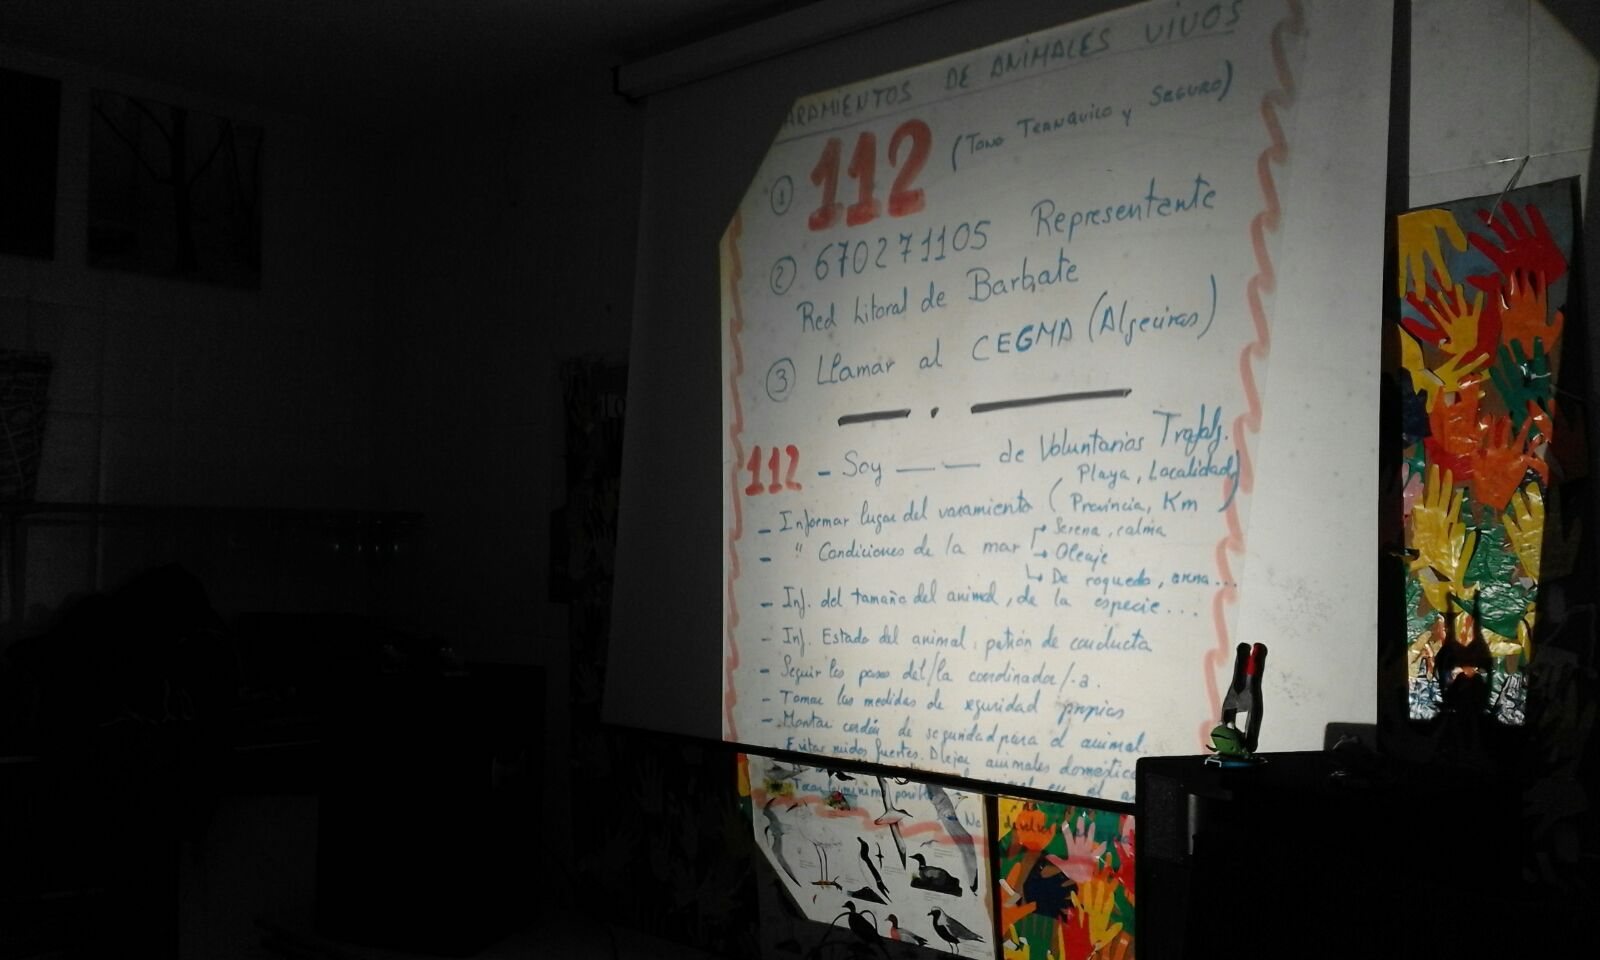 ARAMIENTOS DE ANIMALES VIVOS
① 112 (Tono Tranquilo y Seguro)
② 670271105 Representante
Red Litoral de Barbate
③ Llamar al CEGMA (Algeciras)
112 - Soy __ __ de Voluntarios Trafalg.
- Informar lugar del varamiento (Playa, Localidad
Provincia, Km)
- " Condiciones de la mar → Serena, calma
→ Oleaje
→ De roquedo, arena...
- Inf. del tamaño del animal, de la especie...
- Inf. Estado del animal, patrón de conducta
- Seguir los pasos del/la coordinador/-a.
- Tomar las medidas de seguridad propias
- Montar cordón de seguridad para el animal.
- Evitar ruidos fuertes. Alejar animales doméstico
Tocar lo mínimo posible
- No